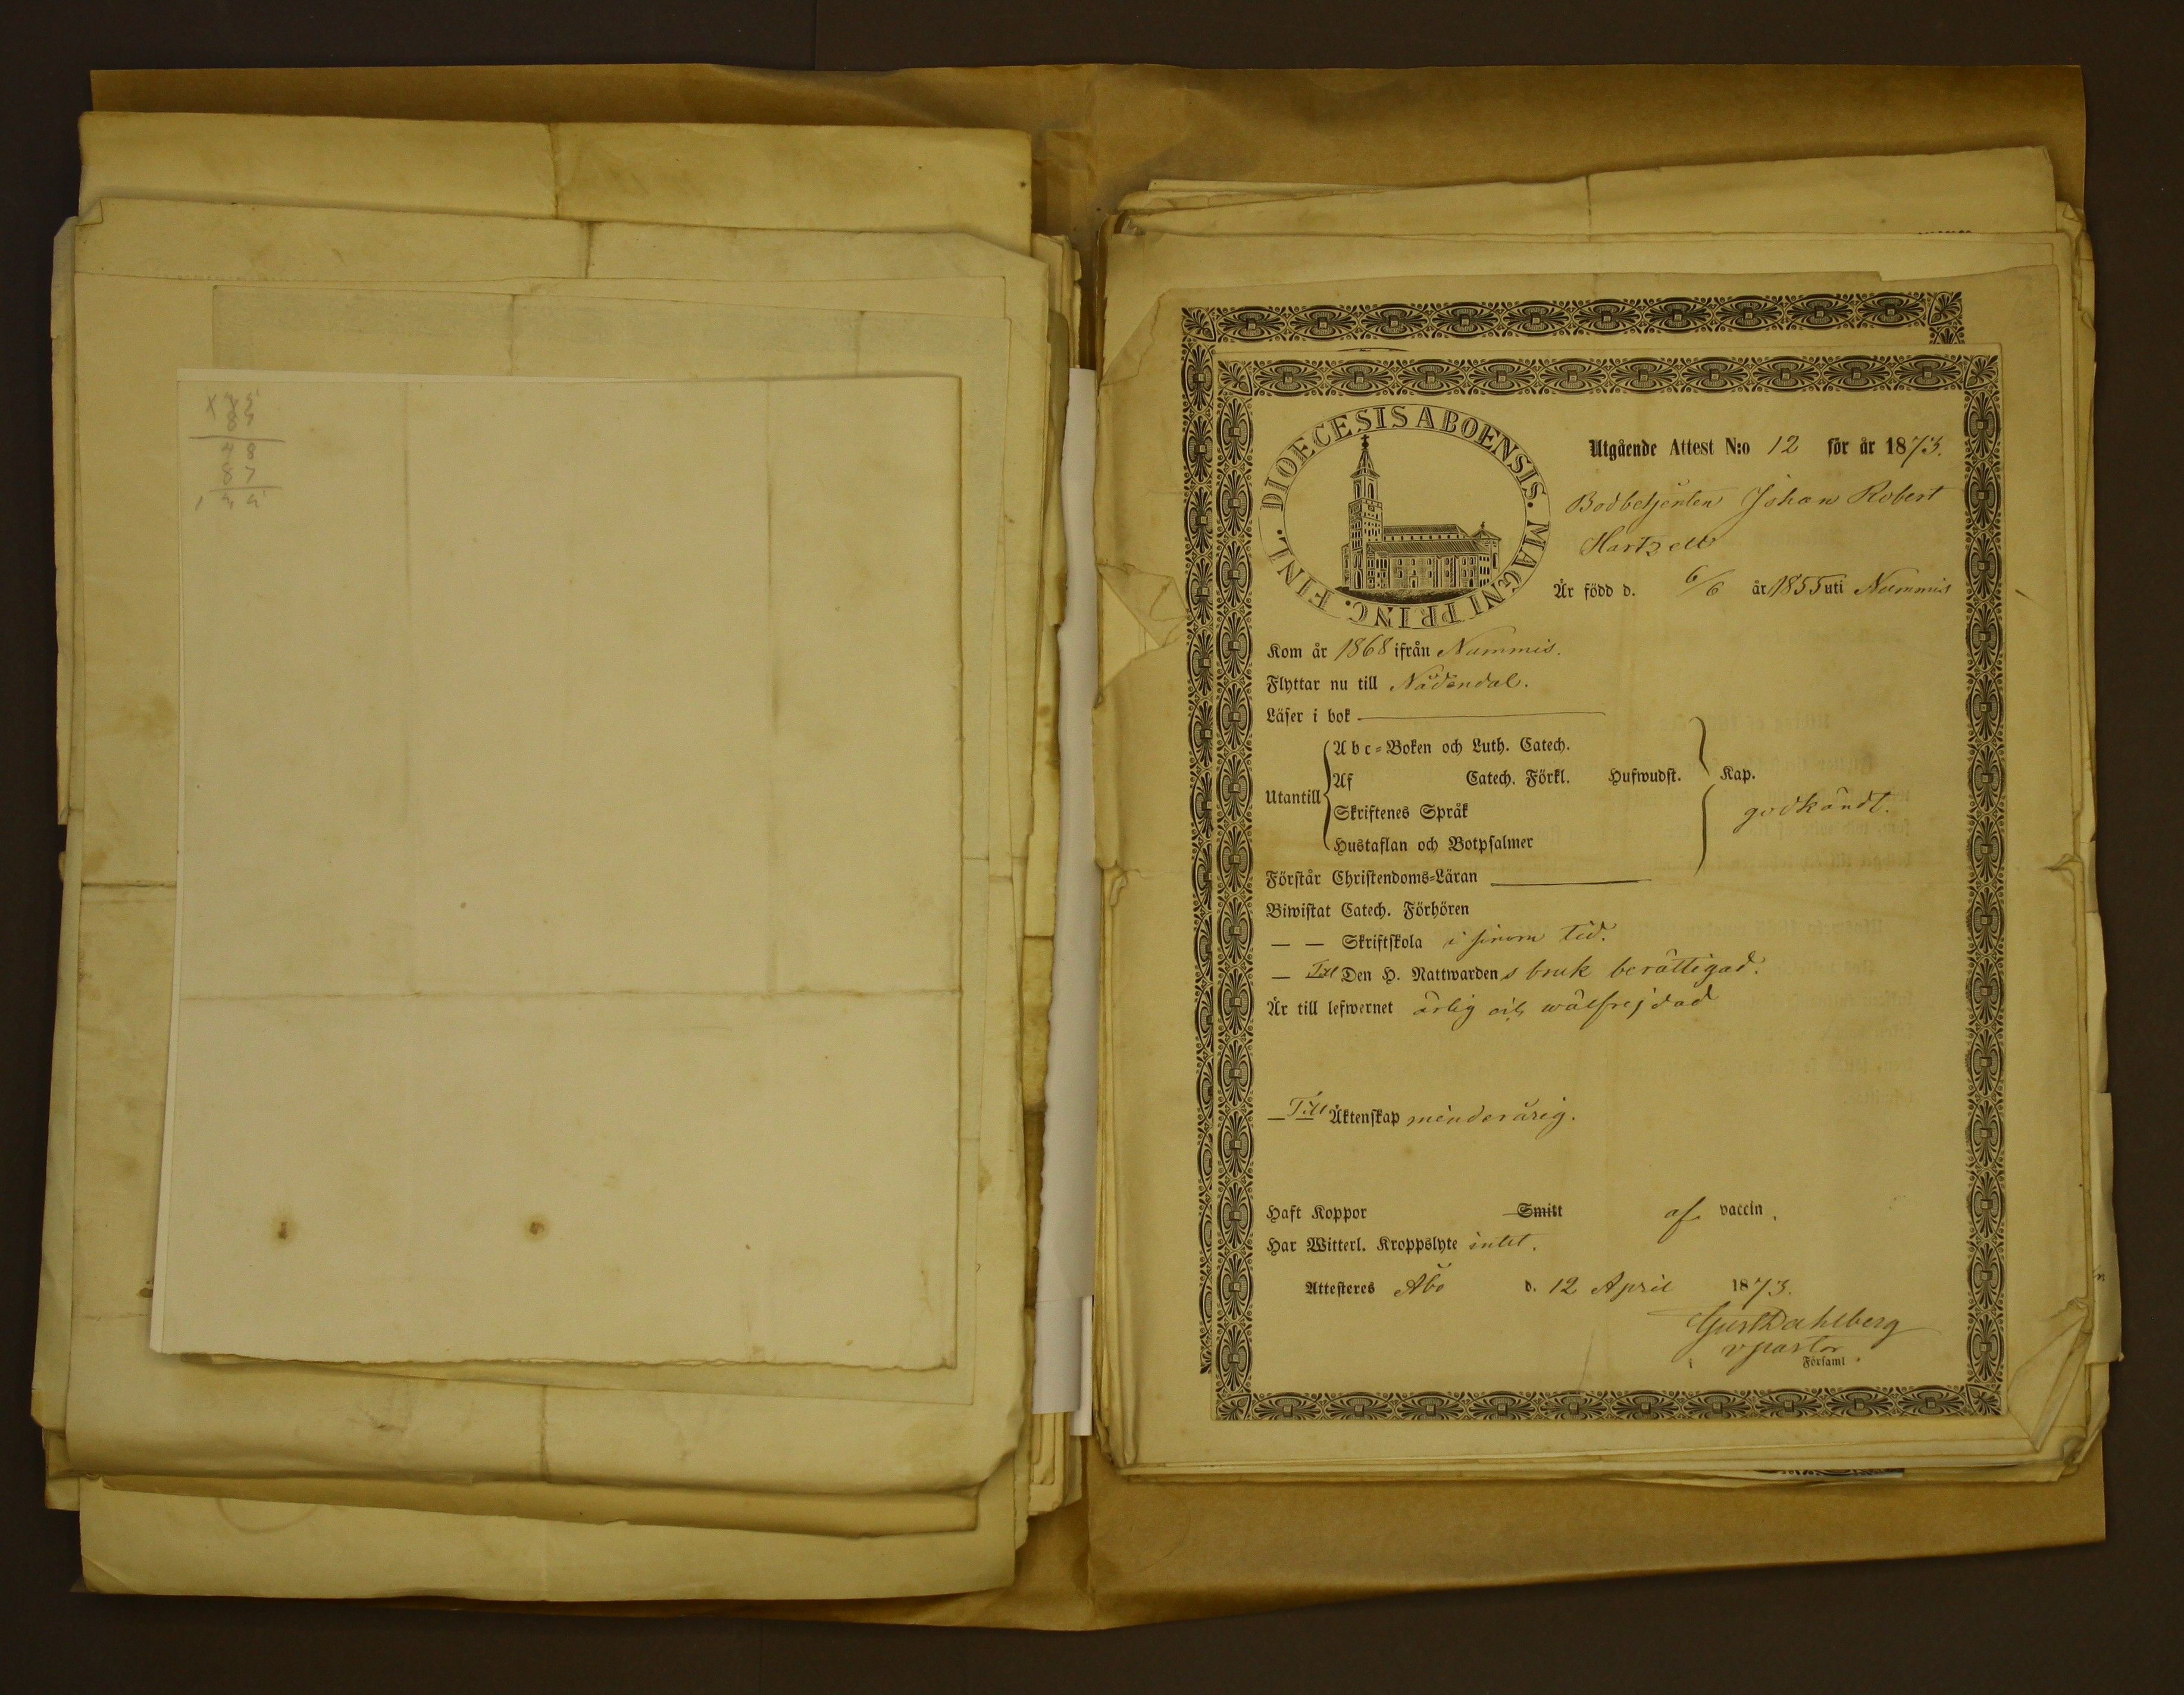 DIOECESIS ABOENSIS. MAGNI PRINC. FINL.
Utgående Attest N:o 12 för år 1873.
Bodbetjenten Johan Robert
Hartzell
Är född d. 6/6 år 1855 uti Nummis
Kom år 1868 ifrån Nummis.
Flyttar nu till Nådendal.
Läser i bok
Utantill
Abc-Boken och Luth. Catech.
Af Catech. Förkl. Hufwudst. Kap.
Skriftenes Språk
godkändt.
Hustaflan och Botpsalmer
Förstår Christendoms-Läran
Biwistat Catech. Förhören
— — Skriftskola i sinom tid.
— Till Den H. Nattwardens bruk berättigad.
Är till lefwernet ärlig och wälfrejdad
— Till Äktenskap minderårig.
Haft Koppor Smitt af vaccin.
Har Witterl. Kroppslyte intet.
Attesteras Åbo d. 12 April 1873.
Gust Dahlberg
v pastor
i Församl.
48
87